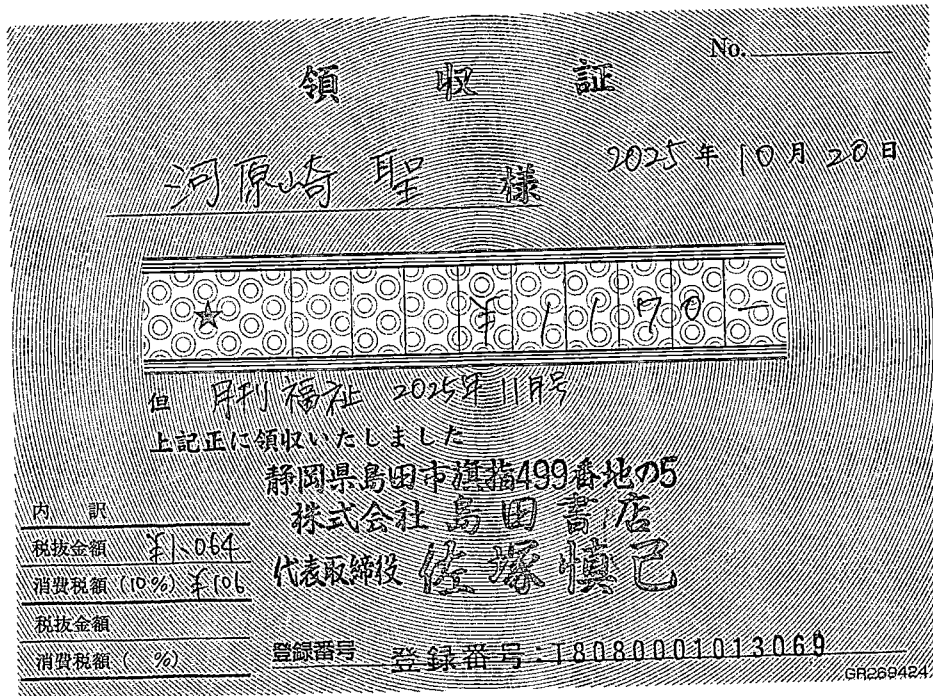 No.
領収証
2025年10月20日
河原崎 聖 様
☆ ¥1170-
但 月刊福祉 2025年11月号
上記正に領収いたしました
静岡県島田市旗指499番地の5
株式会社 島田書店
代表取締役 佐塚慎己
内訳
税抜金額 ¥1,064
消費税額(10%) ¥106
税抜金額
消費税額( %)
登録番号 登録番号:T8080001013069
GR269424